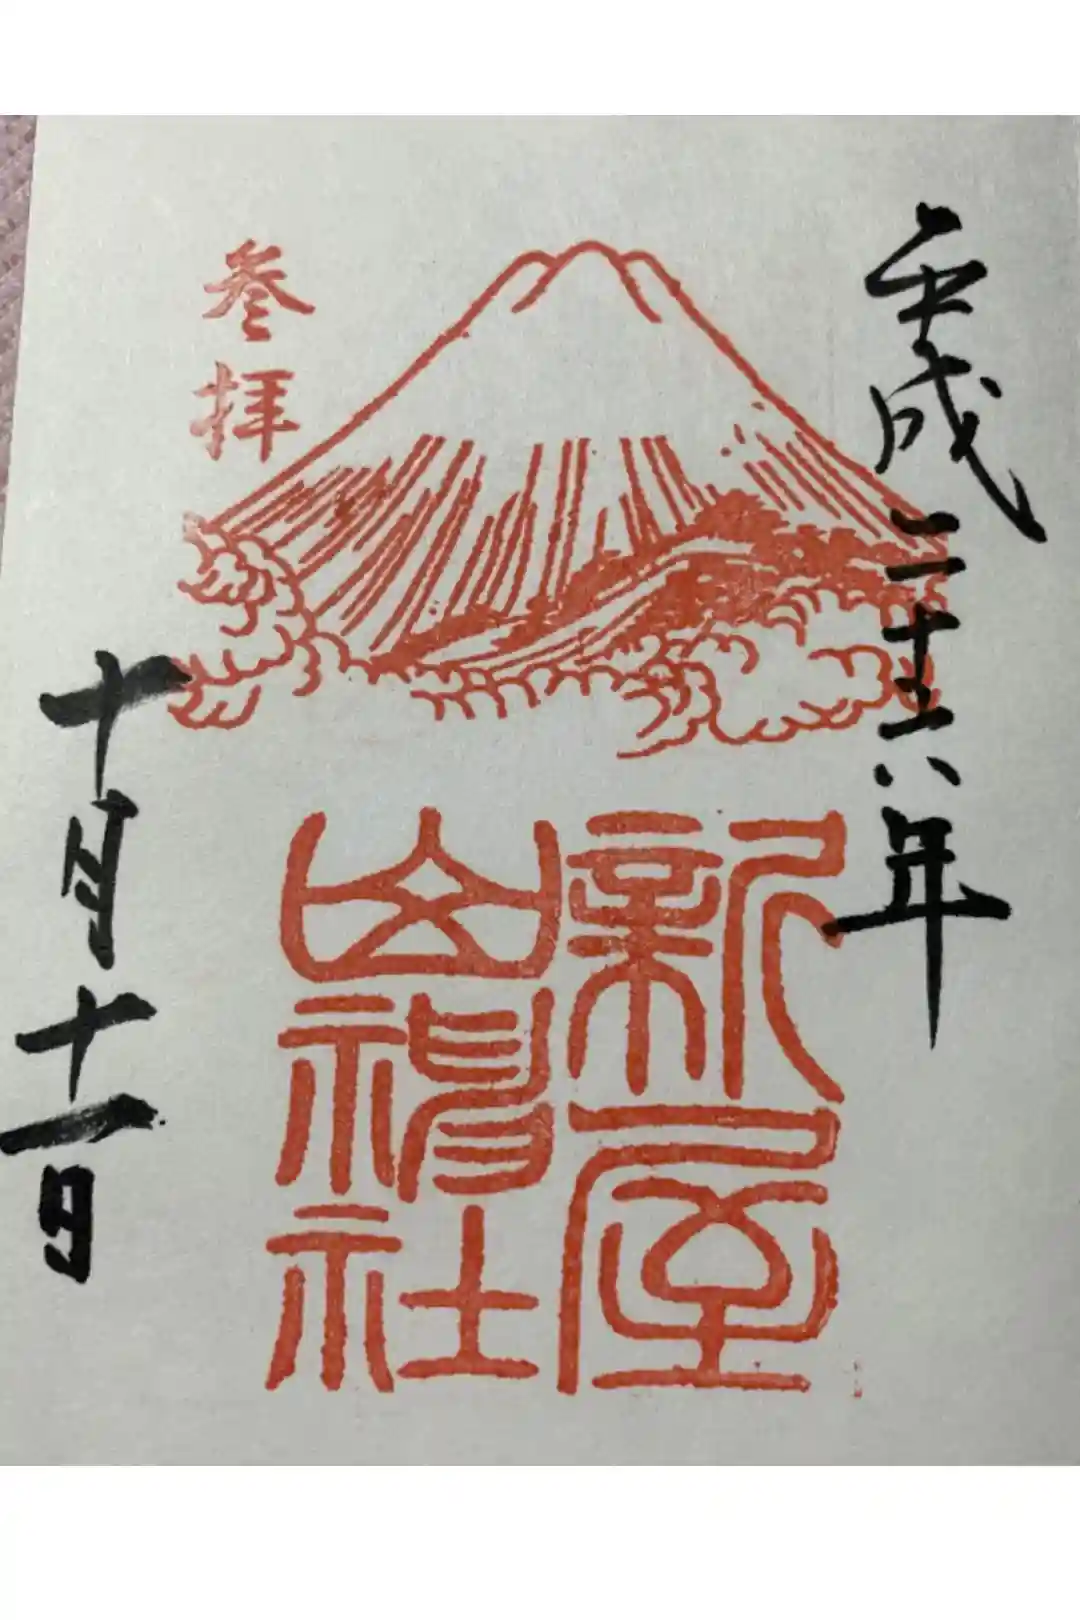 平成二十六年
新屋
山神社
参拝
十月十一日